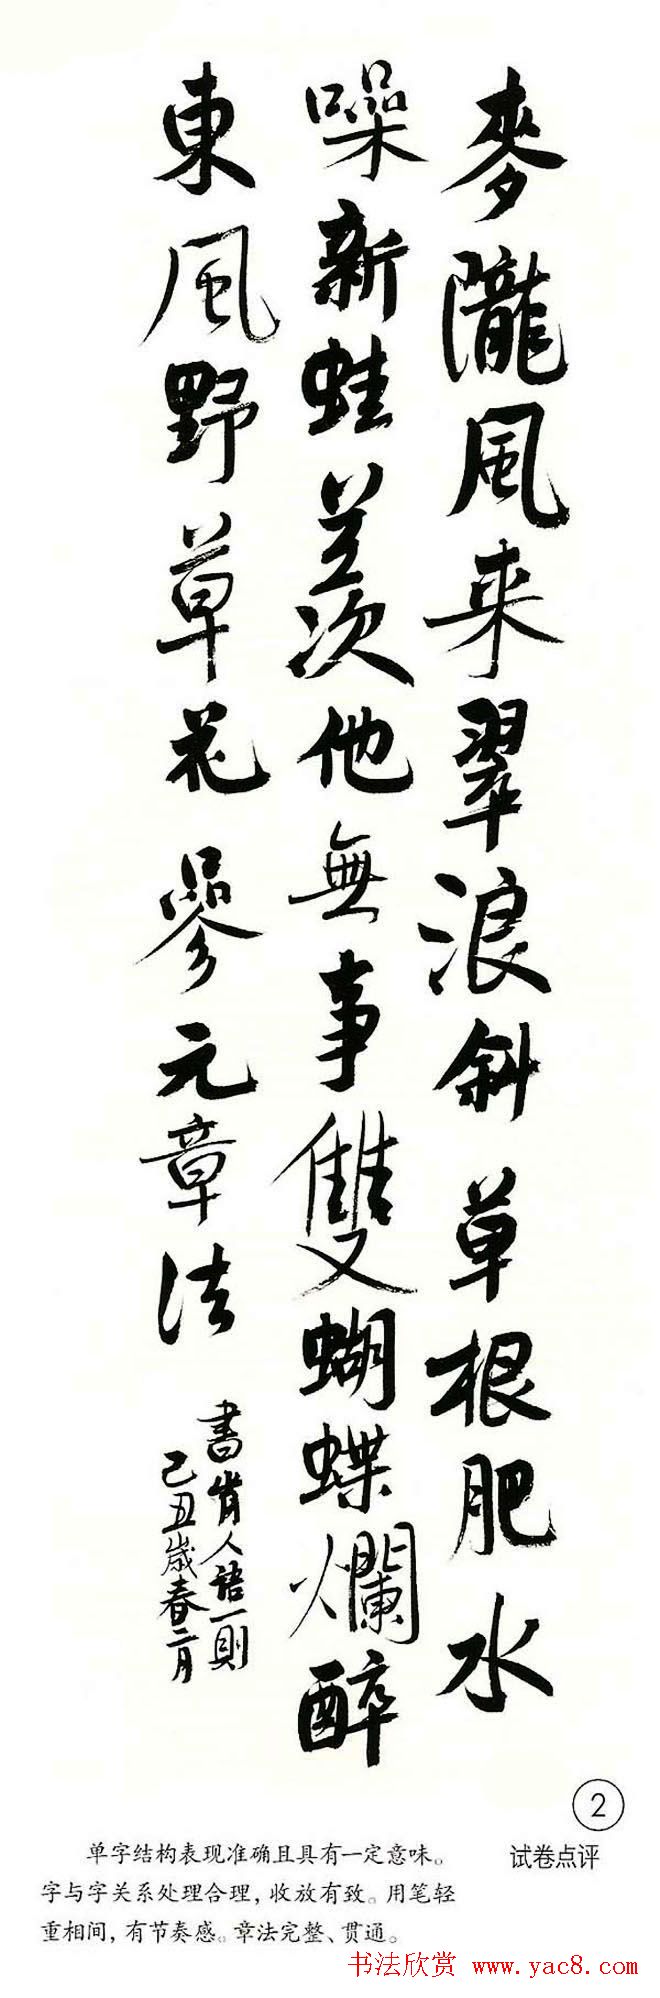 麥隴風来翠浪斜草根肥水
噪新蛙羨他無事雙蝴蝶爛醉
東風野草花參元章法
書前人語一則
己丑歲春二月
2
试卷点评
单字结构表现准确且具有一定意味。
字与字关系处理合理，收放有致。用笔轻
重相间，有节奏感。章法完整、贯通。
书法欣赏 www.yac8.com